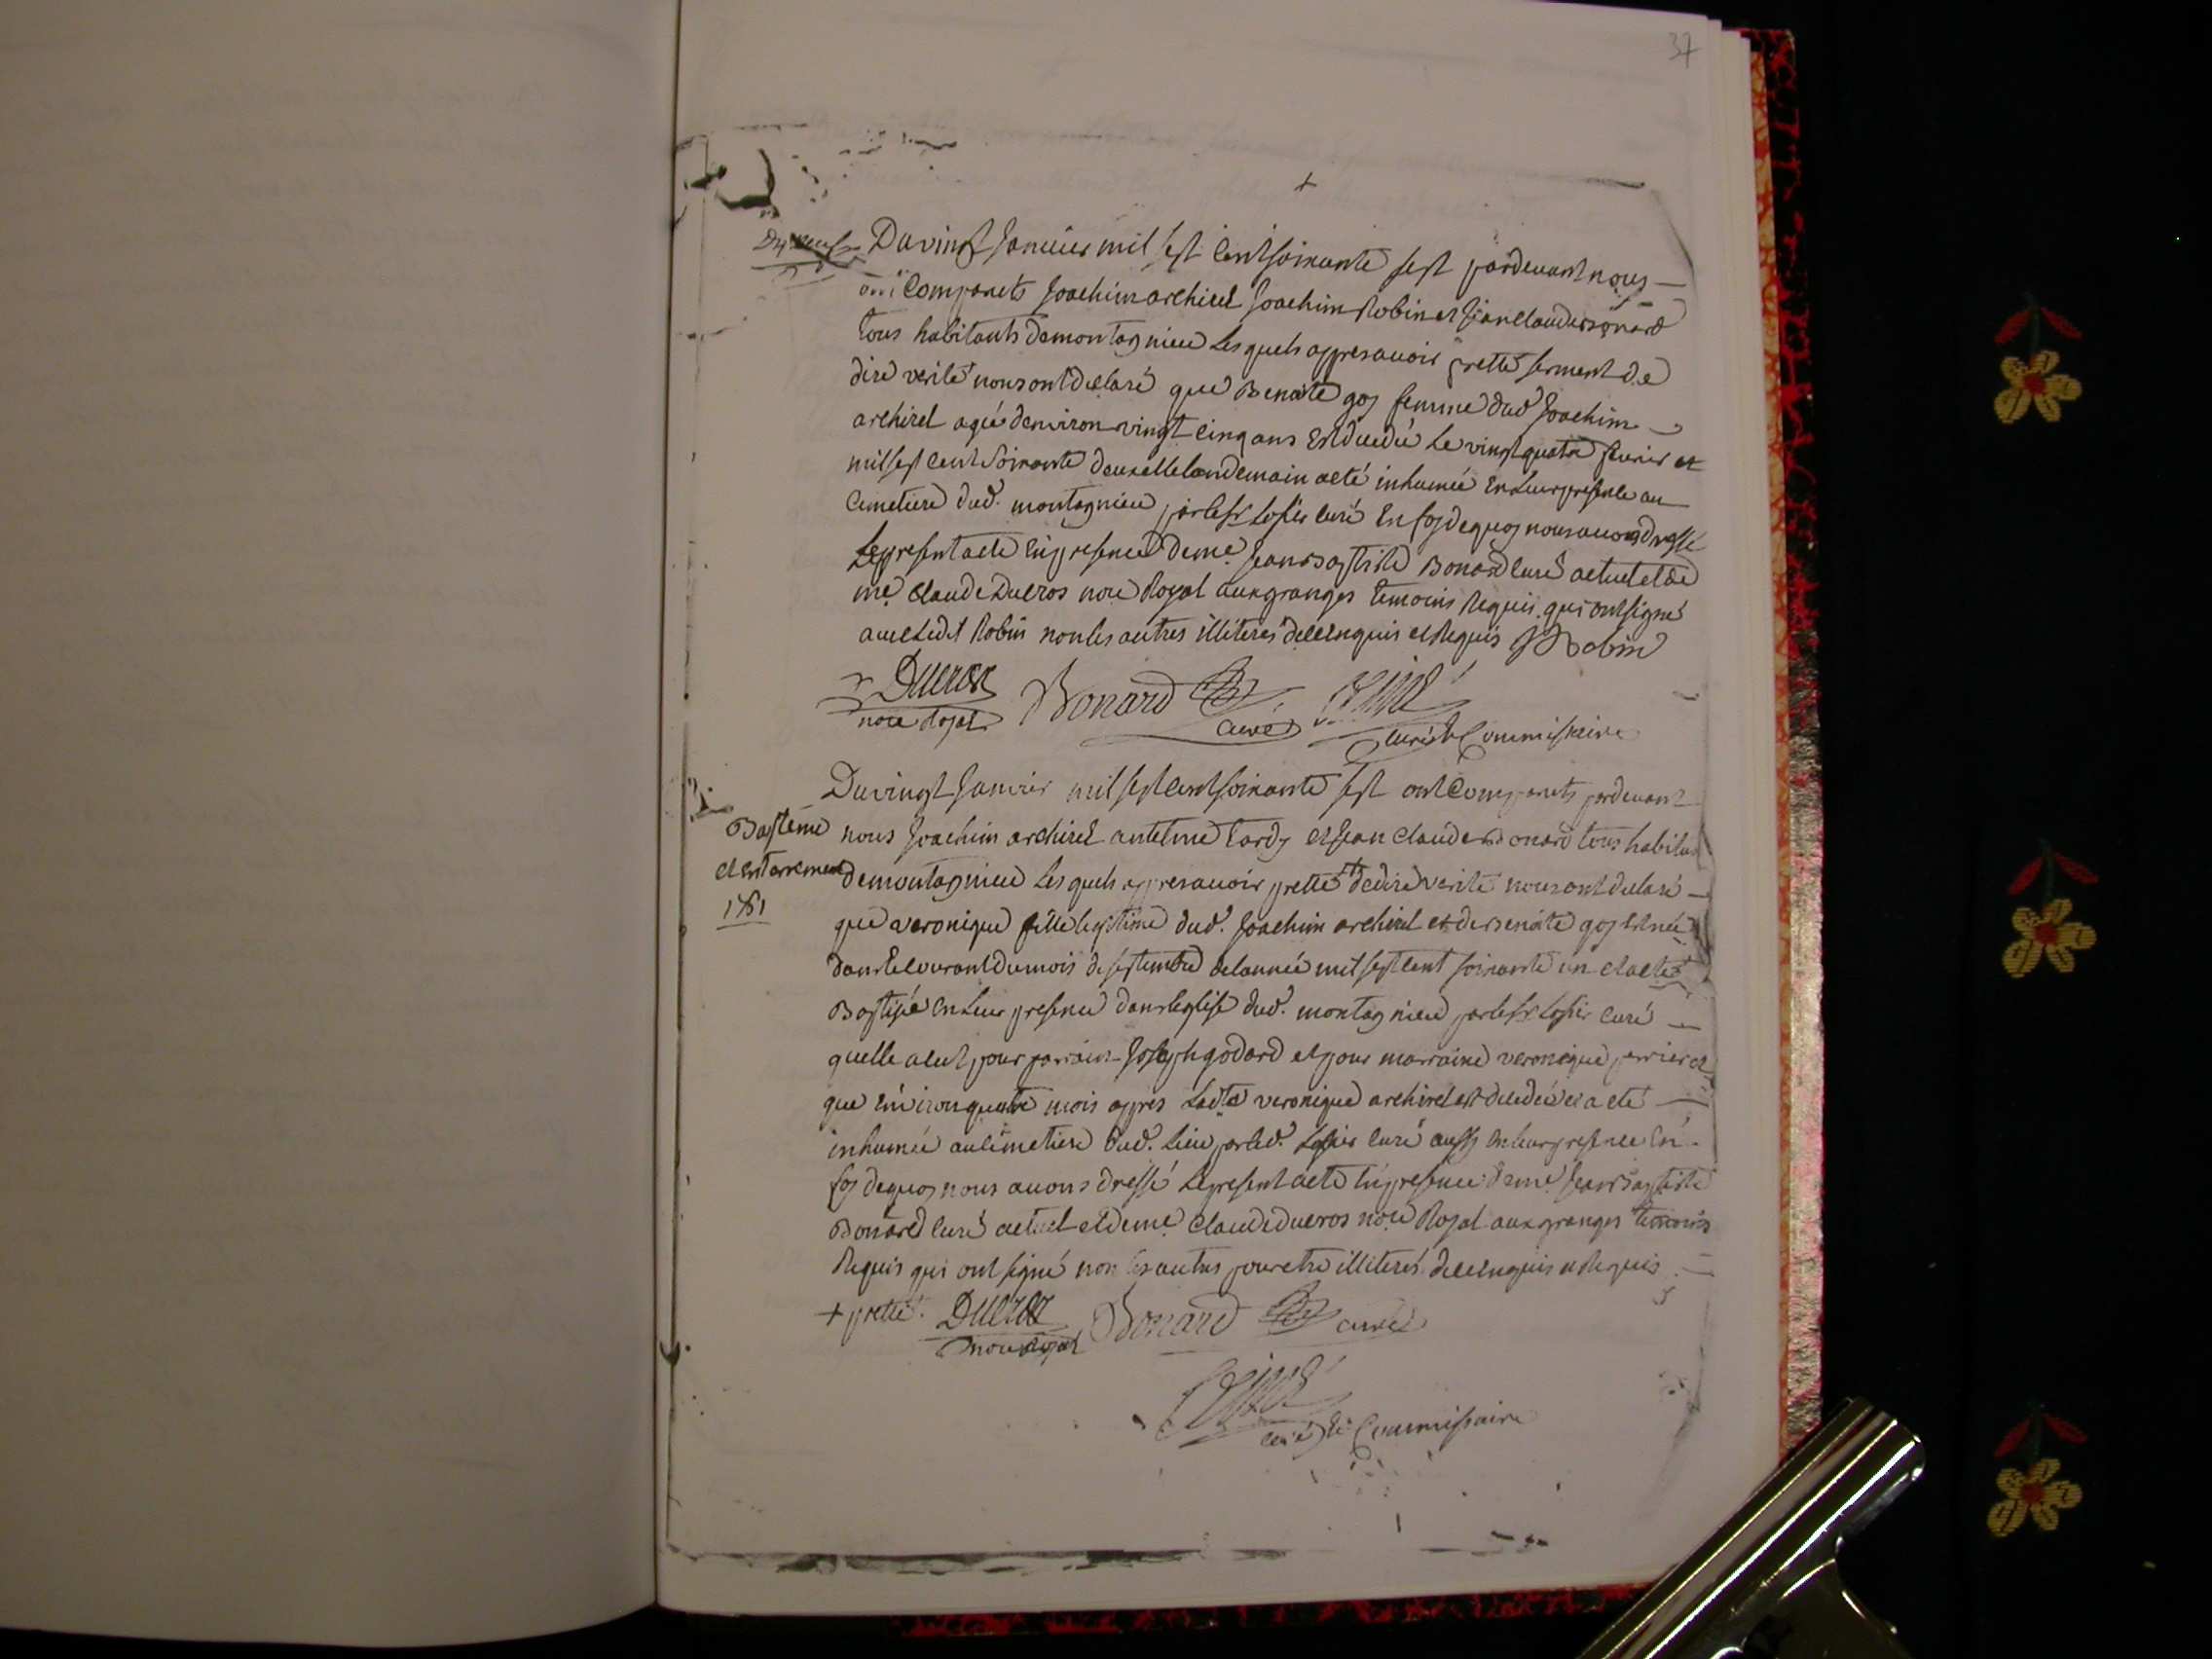 37
Du vingt Janvier mil sept cent soixante sept pardevant nous
ont Comparuts Joachim archirel Joachim Robin et Jean Claude Bonard
tous habitants de montagnieu Les quels appres avoir pretté serment de
dire verité nous ont declaré que Benoite goy femme dud. Joachim
archirel agée denviron vingt cinq ans Est decedée Le vingt quatre fevrier et
mil sept cent Soixante deux elle landemain a eté inhumée En Leur presence au
Cimetiere dud. montagnieu par le Sr curé En foy de quoy nous avons dressé
Le present acte En presence de me. Jean Baptiste Bonard curé actuel et de
me. Claude Ducros nore Royal aux granges temoins Requis qui ont signé
avec Ledit Robin non les autres illiterés de ce Enquis et Requis J Robin
Ducros Bonard
nore Royal curé curé & Commissaire
Du vingt Janvier mil sept cent soixante sept ont Comparuts pardevant
Bapteme nous Joachim archirel antelme tardy et Jean Claude Bonard tous habitans
et Enterrement de montagnieu Les quels appres avoir pretté + de dire verité nous ont declaré
que veronique fille legitime dud. Joachim archirel et de Benoite goy Est née
dans le courant du mois de septembre de lannée mil sept cent soixante un et a eté
Baptisée En Leur presence dans leglise dud. montagnieu par le Sr curé
quelle a eut pour parrain Joseph godard et pour marraine veronique perrier et
que Environ quatre mois appres Ladte veronique archirel est decedée et a eté
inhumée au cimetiere dud. Lieu par led. curé aussy En leur presence En
foy de quoy nous avons dressé Le present acte En presence de me. Jean Baptiste
Bonard curé actuel et de me. Claude Ducros nore Royal aux granges temoins
Requis qui ont signé non les autres pour etre illiterés de ce Enquis et Requis
+ pretté. Ducros Bonard curé
nore Royal
curé & Commissaire